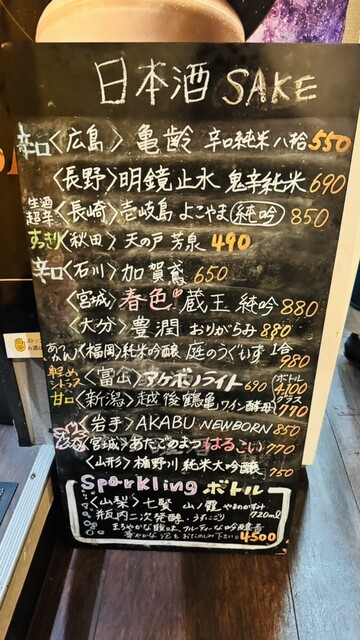 日本酒 SAKE
辛口〈広島〉亀齢 辛口純米 八拾 550
〈長野〉明鏡止水 鬼辛純米 690
生酒 超辛〈長崎〉壱岐島 よこやま 純吟 850
すっきり〈秋田〉天の戸 芳泉 490
辛口〈石川〉加賀鳶 650
〈宮城〉春色 蔵王 純吟 880
〈大分〉豊潤 おりがらみ 880
あつかん〈福岡〉純米吟醸 庭のうぐいす 1合 980
軽め シトラス〈富山〉アケボノライト 690 ボトル 4400
甘口〈新潟〉越後鶴亀 ワイン酵母 グラス 770
〈岩手〉AKABU NEWBORN 850
〈宮城〉あたごのまつ はるこい 770
〈山形〉楯野川 純米大吟醸 750
Sparkling ボトル
〈山梨〉七賢 山ノ霞 やまのかすみ
瓶内二次発酵 うすにごり 720ml
まろやかな
華やかな泡をおたのしみ下さい。4500